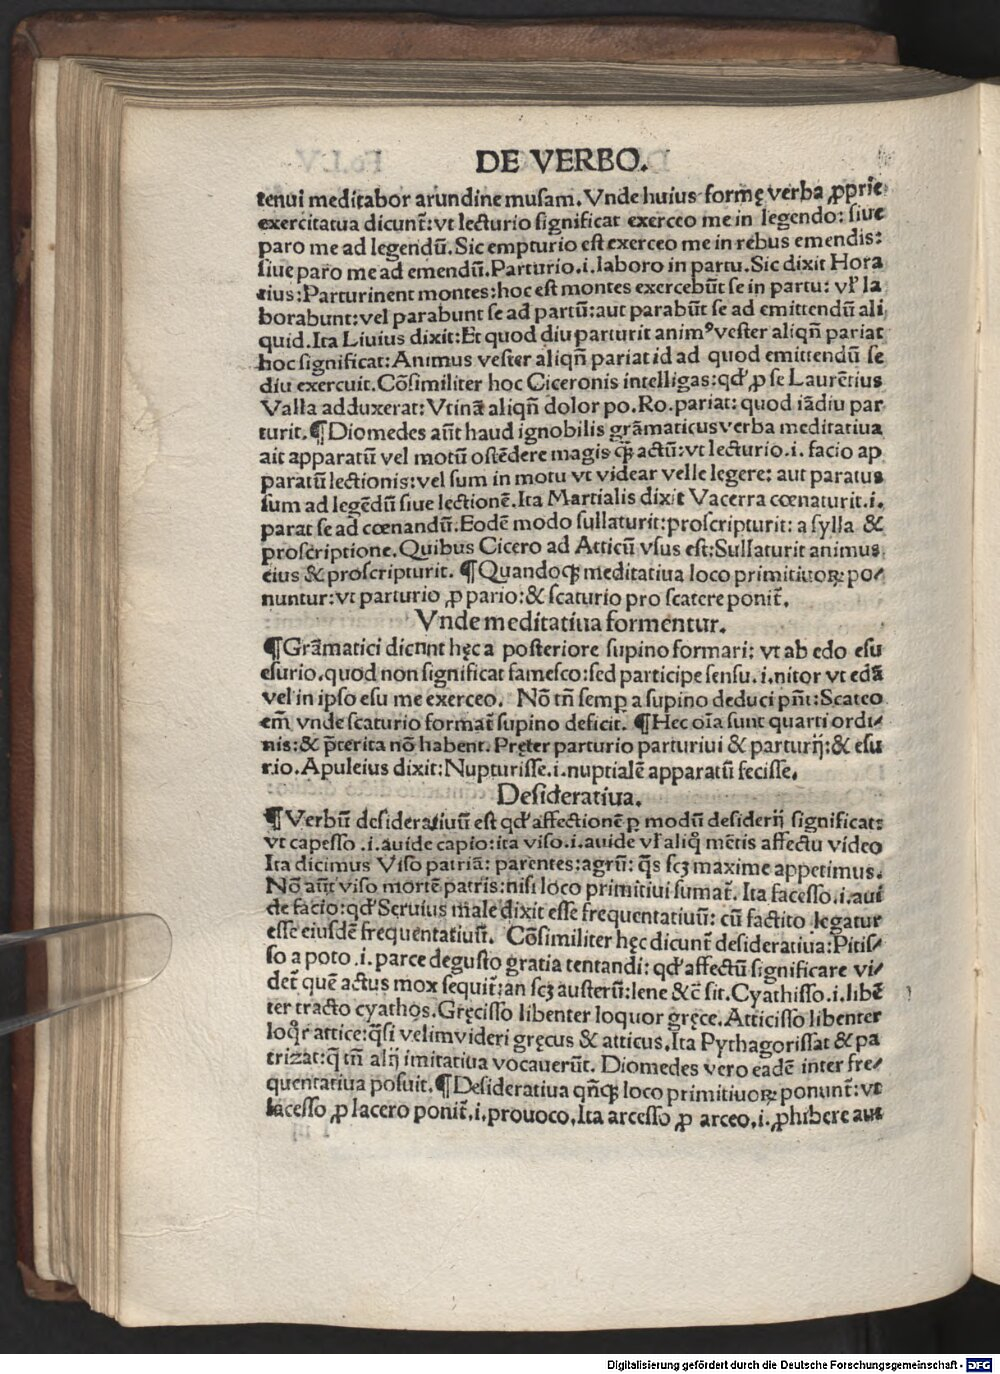 DE VERBO.
tenui meditabor arundine musam. Vnde huius formę verba ꝓprie
exercitatiua dicunt̃: vt lecturio significat exerceo me in legendo: siue
paro me ad legendũ. Sic empturio est exerceo me in rebus emendis:
siue paro me ad emendũ. Parturio .i. laboro in partu. Sic dixit Hora
tius: Parturinent montes: hoc est montes exercebũt se in partu: vl̃ la
borabunt: vel parabunt se ad partũ: aut parabũt se ad emittendũ ali
quid. Ita Liuius dixit: Et quod diu parturit animꝰ vester aliqñ pariat
hoc significat: Animus vester aliqñ pariat id ad quod emittendũ se
diu exercuit. Cõsimiliter hoc Ciceronis intelligas: qđ ꝓ se Laurẽtius
Valla adduxerat: Vtinã aliqñ dolor po. Ro. pariat: quod iãdiu par
turit. ¶ Diomedes aũt haud ignobilis grãmaticus verba meditatiua
ait apparatũ vel motũ ostẽdere magis ꝗ̃ actũ: vt lecturio .i. facio ap
paratũ lectionis: vel sum in motu vt videar velle legere: aut paratus
sum ad legẽdũ siue lectionẽ. Ita Martialis dixit Vacerra cœnaturit .i.
parat se ad cœnandũ. Eodẽ modo sullaturit: proscripturit: a sylla &
proscriptione. Quibus Cicero ad Atticũ vsus est: Sullaturit animus
eius & proscripturit. ¶ Quandoqꝫ meditatiua loco primitiuoꝝ po⸗
nuntur: vt parturio ꝓ pario: & scaturio pro scatere ponit̃.
Vnde meditatiua formentur.
¶ Grãmatici dicunt hęc a posteriore supino formari: vt ab edo esu
esurio. quod non significat famesco: sed participe sensu .i. nitor vt edã
vel in ipso esu me exerceo. Nõ tñ semꝑ a supino deduci pñt: Scateo
em̃ vnde scaturio format̃ supino deficit. ¶ Hec oĩa sunt quarti ordi⸗
nis: & p̃terita nõ habent. Pręter parturio parturiui & parturij: & esu
rio. Apuleius dixit: Nupturisse .i. nuptialẽ apparatũ fecisse.
Desideratiua.
¶ Verbũ desideratiuũ est qđ affectionẽ ꝑ modũ desiderij significat:
vt capesso .i. auide capio: ita viso .i. auide vl̃ aliq̃ mẽtis affectu video
Ita dicimus Viso patriã: parentes: agrũ: q̃s scꝫ maxime appetimus.
Nõ aũt viso mortẽ patris: nisi loco primitiui sumat̃. Ita facesso .i. aui
de facio: qđ Seruius male dixit esse frequentatiuũ: cũ factito legatur
esse eiusdẽ frequentatiuũ. Cõsimiliter hęc dicunt̃ desideratiua: Pitis⸗
so a poto .i. parce degusto gratia tentandi: qđ affectũ significare vi⸗
det̃ quẽ actus mox sequit̃: an scꝫ austerũ: lene &c̃ sit. Cyathisso .i. libẽ
ter tracto cyathos. Gręcisso libenter loquor gręce. Atticisso libenter
loqr̃ attice: q̃si velim videri gręcus & atticus. Ita Pythagorissat & pa
trizat: q̃ tñ alij imitatiua vocauerũt. Diomedes vero eadẽ inter fre⸗
quentatiua posuit. ¶ Desideratiua qñqꝫ loco primitiuoꝝ ponunt̃: vt
lacesso ꝓ lacero ponit̃ .i. prouoco. Ita arcesso ꝓ arceo .i. ꝓhibere aut
Digitalisierung gefördert durch die Deutsche Forschungsgemeinschaft - DFG